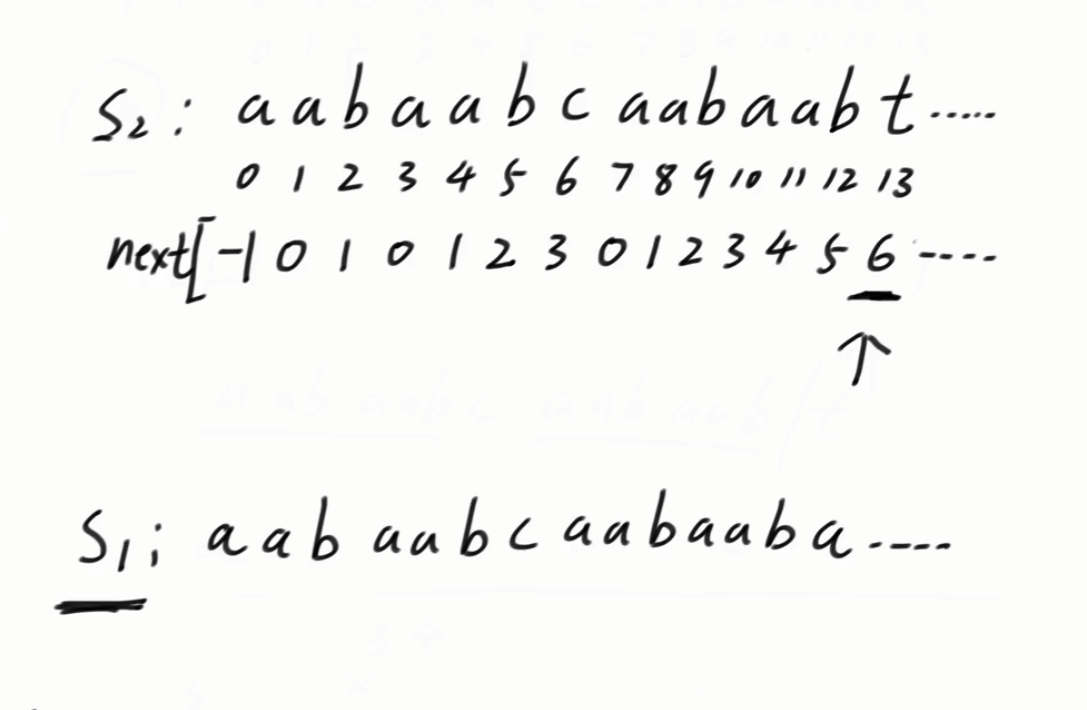 S2: a a b a a b c a a b a a b t .....
0 1 2 3 4 5 6 7 8 9 10 11 12 13
next[ -1 0 1 0 1 2 3 0 1 2 3 4 5 6 ----
S1; a a b a a b c a a b a a b a ----